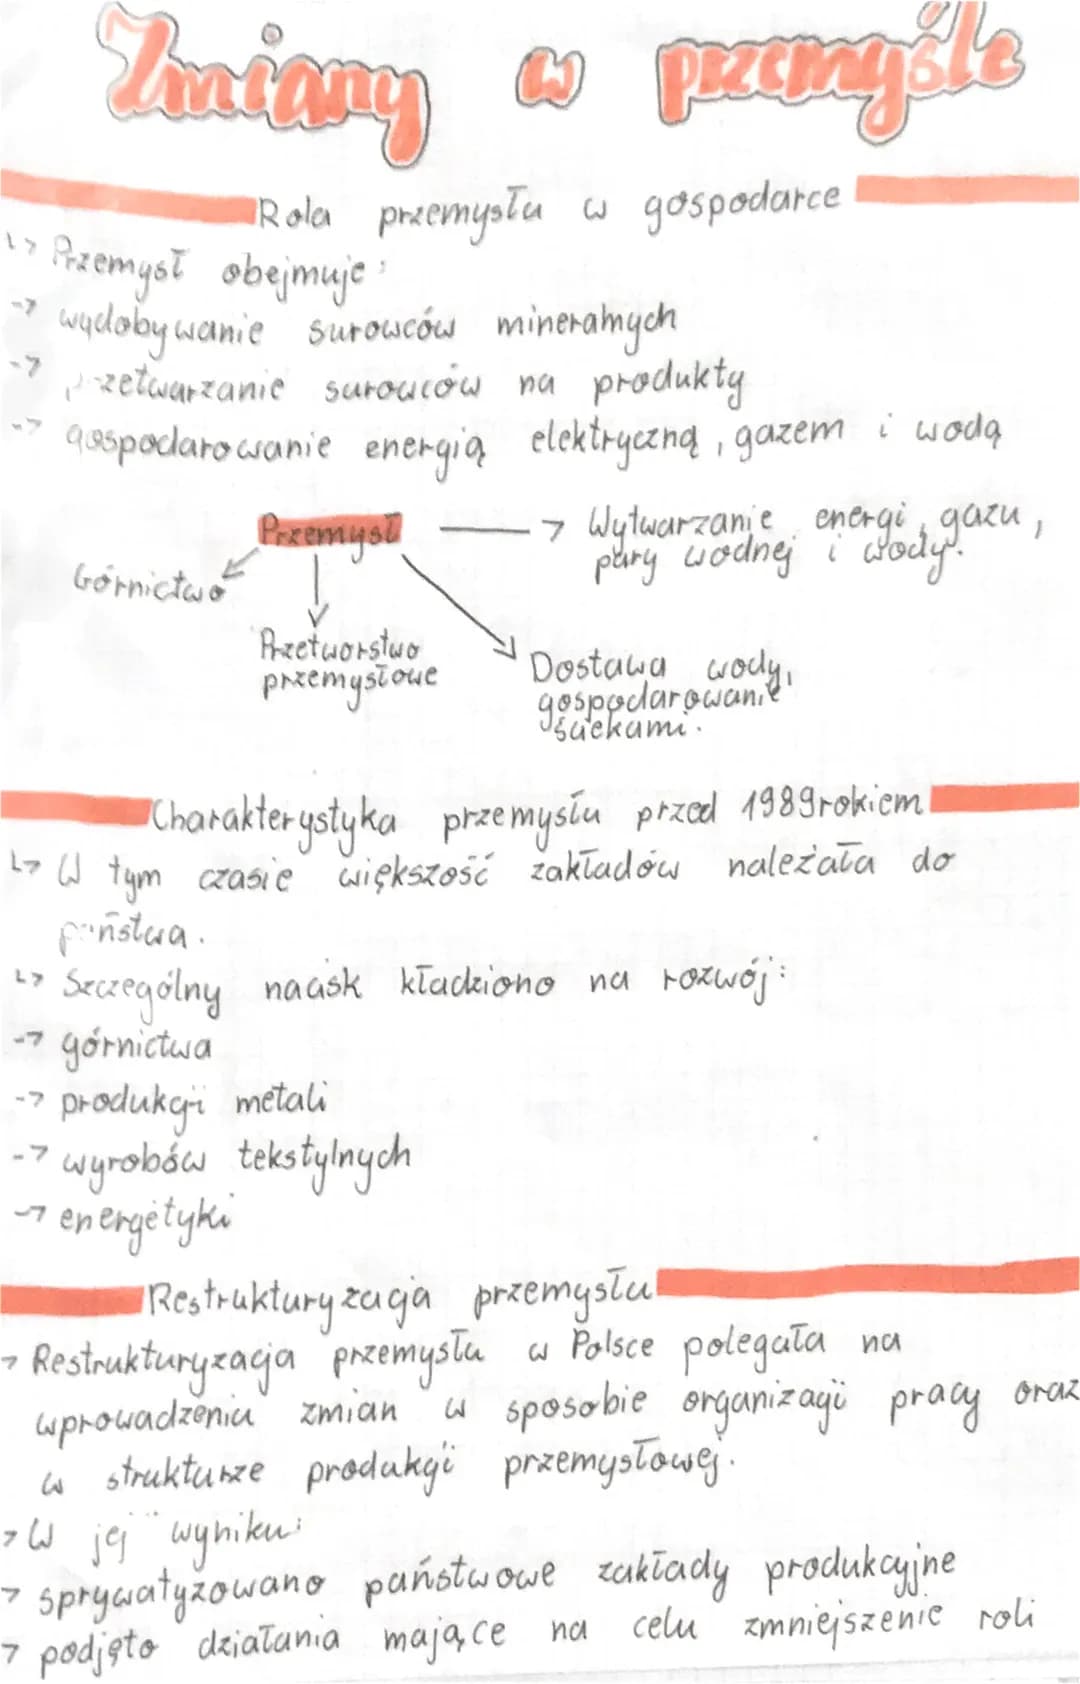 Zmiany w przemyśle
Rola przemysłu w gospodarce
↳ Przemysł obejmuje:
-> wydobywanie surowców mineralnych
-> przetwarzanie surowców na produkty
-> gospodarowanie energią elektryczną, gazem i wodą
Przemysł -> Wytwarzanie energi, gazu,
pary wodnej i wody.
Górnictwo
Przetworstwo
przemysłowe
Dostawa wody,
gospodarowanie
ściekami.
Charakterystyka przemysłu przed 1989rokiem
↳ W tym czasie większość zakładów należała do
państwa.
↳ Szczególny nacisk kładziono na rozwój:
-> górnictwa
-> produkcji metali
-> wyrobów tekstylnych
-> energetyki
Restrukturyzacja przemysłu
> Restrukturyzacja przemysłu w Polsce polegała na
wprowadzeniu zmian w sposobie organizacji pracy oraz
w strukturze produkcji przemysłowej.
> W jej wyniku:
> sprywatyzowano państwowe zakłady produkcyjne
> podjęto działania mające na celu zmniejszenie roli